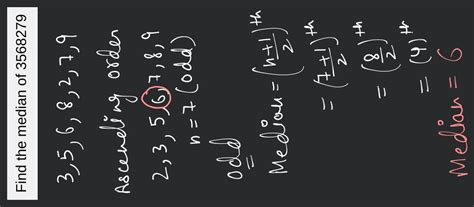 Find the median of 3568279
3, 5, 6, 8, 2, 7, 9
Ascending order
2, 3, 5, 6, 7, 8, 9
n = 7 (odd)
odd
Median = (n+1/2)th
= (7+1/2)th
= (8/2)th
= (4)th
Median = 6